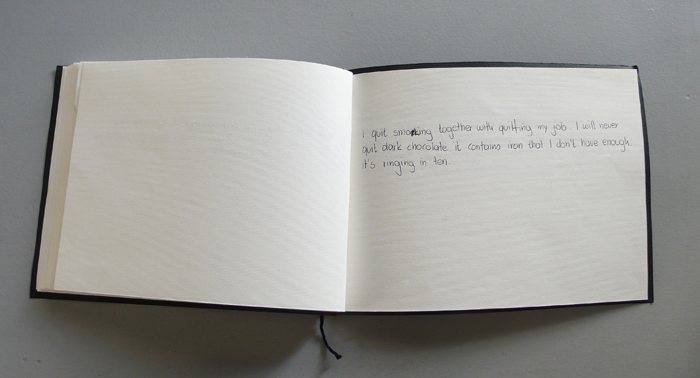 I quit smoking together with quitting my job. I will never
quit dark chocolate. it contains iron that I don't have enough.
it's ringing in ten.